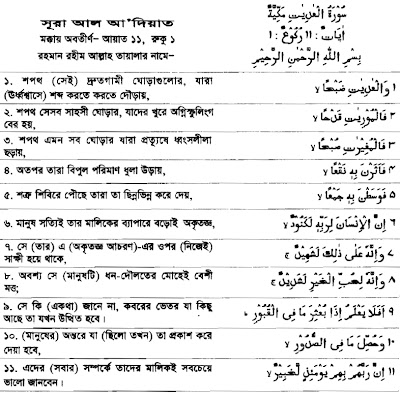 সূরা আল আ'দিয়াত
মক্কায় অবতীর্ণ- আয়াত ১১, রুকু ১
রহমান রহীম আল্লাহ তায়ালার নামে-
سُوْرَةُ الْعٰدِيٰتِ مَكِّيَّةٌ
اٰيَاتُ : ١١ رُكُوْعٌ : ١
بِسْمِ اللّٰهِ الرَّحْمٰنِ الرَّحِيْمِ
১. শপথ (সেই) দ্রুতগামী ঘোড়াগুলোর, যারা
(ঊর্ধ্বশ্বাসে) শব্দ করতে করতে দৌড়ায়,
١ وَالْعٰدِيٰتِ ضَبْحًا ۙ
২. শপথ সেসব সাহসী ঘোড়ার, যাদের খুরে অগ্নিস্ফুলিংগ
বের হয়,
٢ فَالْمُوْرِيٰتِ قَدْحًا ۙ
৩. শপথ এমন সব ঘোড়ার যারা প্রত্যুষে ধ্বংসলীলা
ছড়ায়,
٣ فَالْمُغِيْرٰتِ صُبْحًا ۙ
৪. অতপর তারা বিপুল পরিমাণ ধুলা উড়ায়,
٤ فَاَثَرْنَ بِهٖ نَقْعًا ۙ
৫. শত্রু শিবিরে পৌছে তারা তা ছিন্নভিন্ন করে দেয়,
٥ فَوَسَطْنَ بِهٖ جَمْعًا ۙ
৬. মানুষ সত্যিই তার মালিকের ব্যাপারে বড়োই অকৃতজ্ঞ,
٦ اِنَّ الْاِنْسَانَ لِرَبِّهٖ لَكَنُوْدٌ ۚ
৭. সে (তার) এ (অকৃতজ্ঞ আচরণ)-এর ওপর (নিজেই)
সাক্ষী হয়ে থাকে,
٧ وَاِنَّهٗ عَلٰى ذٰلِكَ لَشَهِيْدٌ ۚ
৮. অবশ্য সে (মানুষটি) ধন-দৌলতের মোহেই বেশী
মত্ত;
٨ وَاِنَّهٗ لِحُبِّ الْخَيْرِ لَشَدِيْدٌ ؕ
৯. সে কি (একথা) জানে না, কবরের ভেতর যা কিছু
আছে তা যখন উত্থিত হবে।
٩ اَفَلَا يَعْلَمُ اِذَا بُعْثِرَ مَا فِى الْقُبُوْرِ ۙ
১০. (মানুষের) অন্তরে যা (ছিলো তখন) তা প্রকাশ করে
দেয়া হবে,
١٠ وَحُصِّلَ مَا فِى الصُّدُوْرِ ۙ
১১. এদের (সবার) সম্পর্কে তাদের মালিকই সবচেয়ে
ভালো জানবেন।
١١ اِنَّ رَبَّهُمْ بِهِمْ يَوْمَئِذٍ لَّخَبِيْرٌ